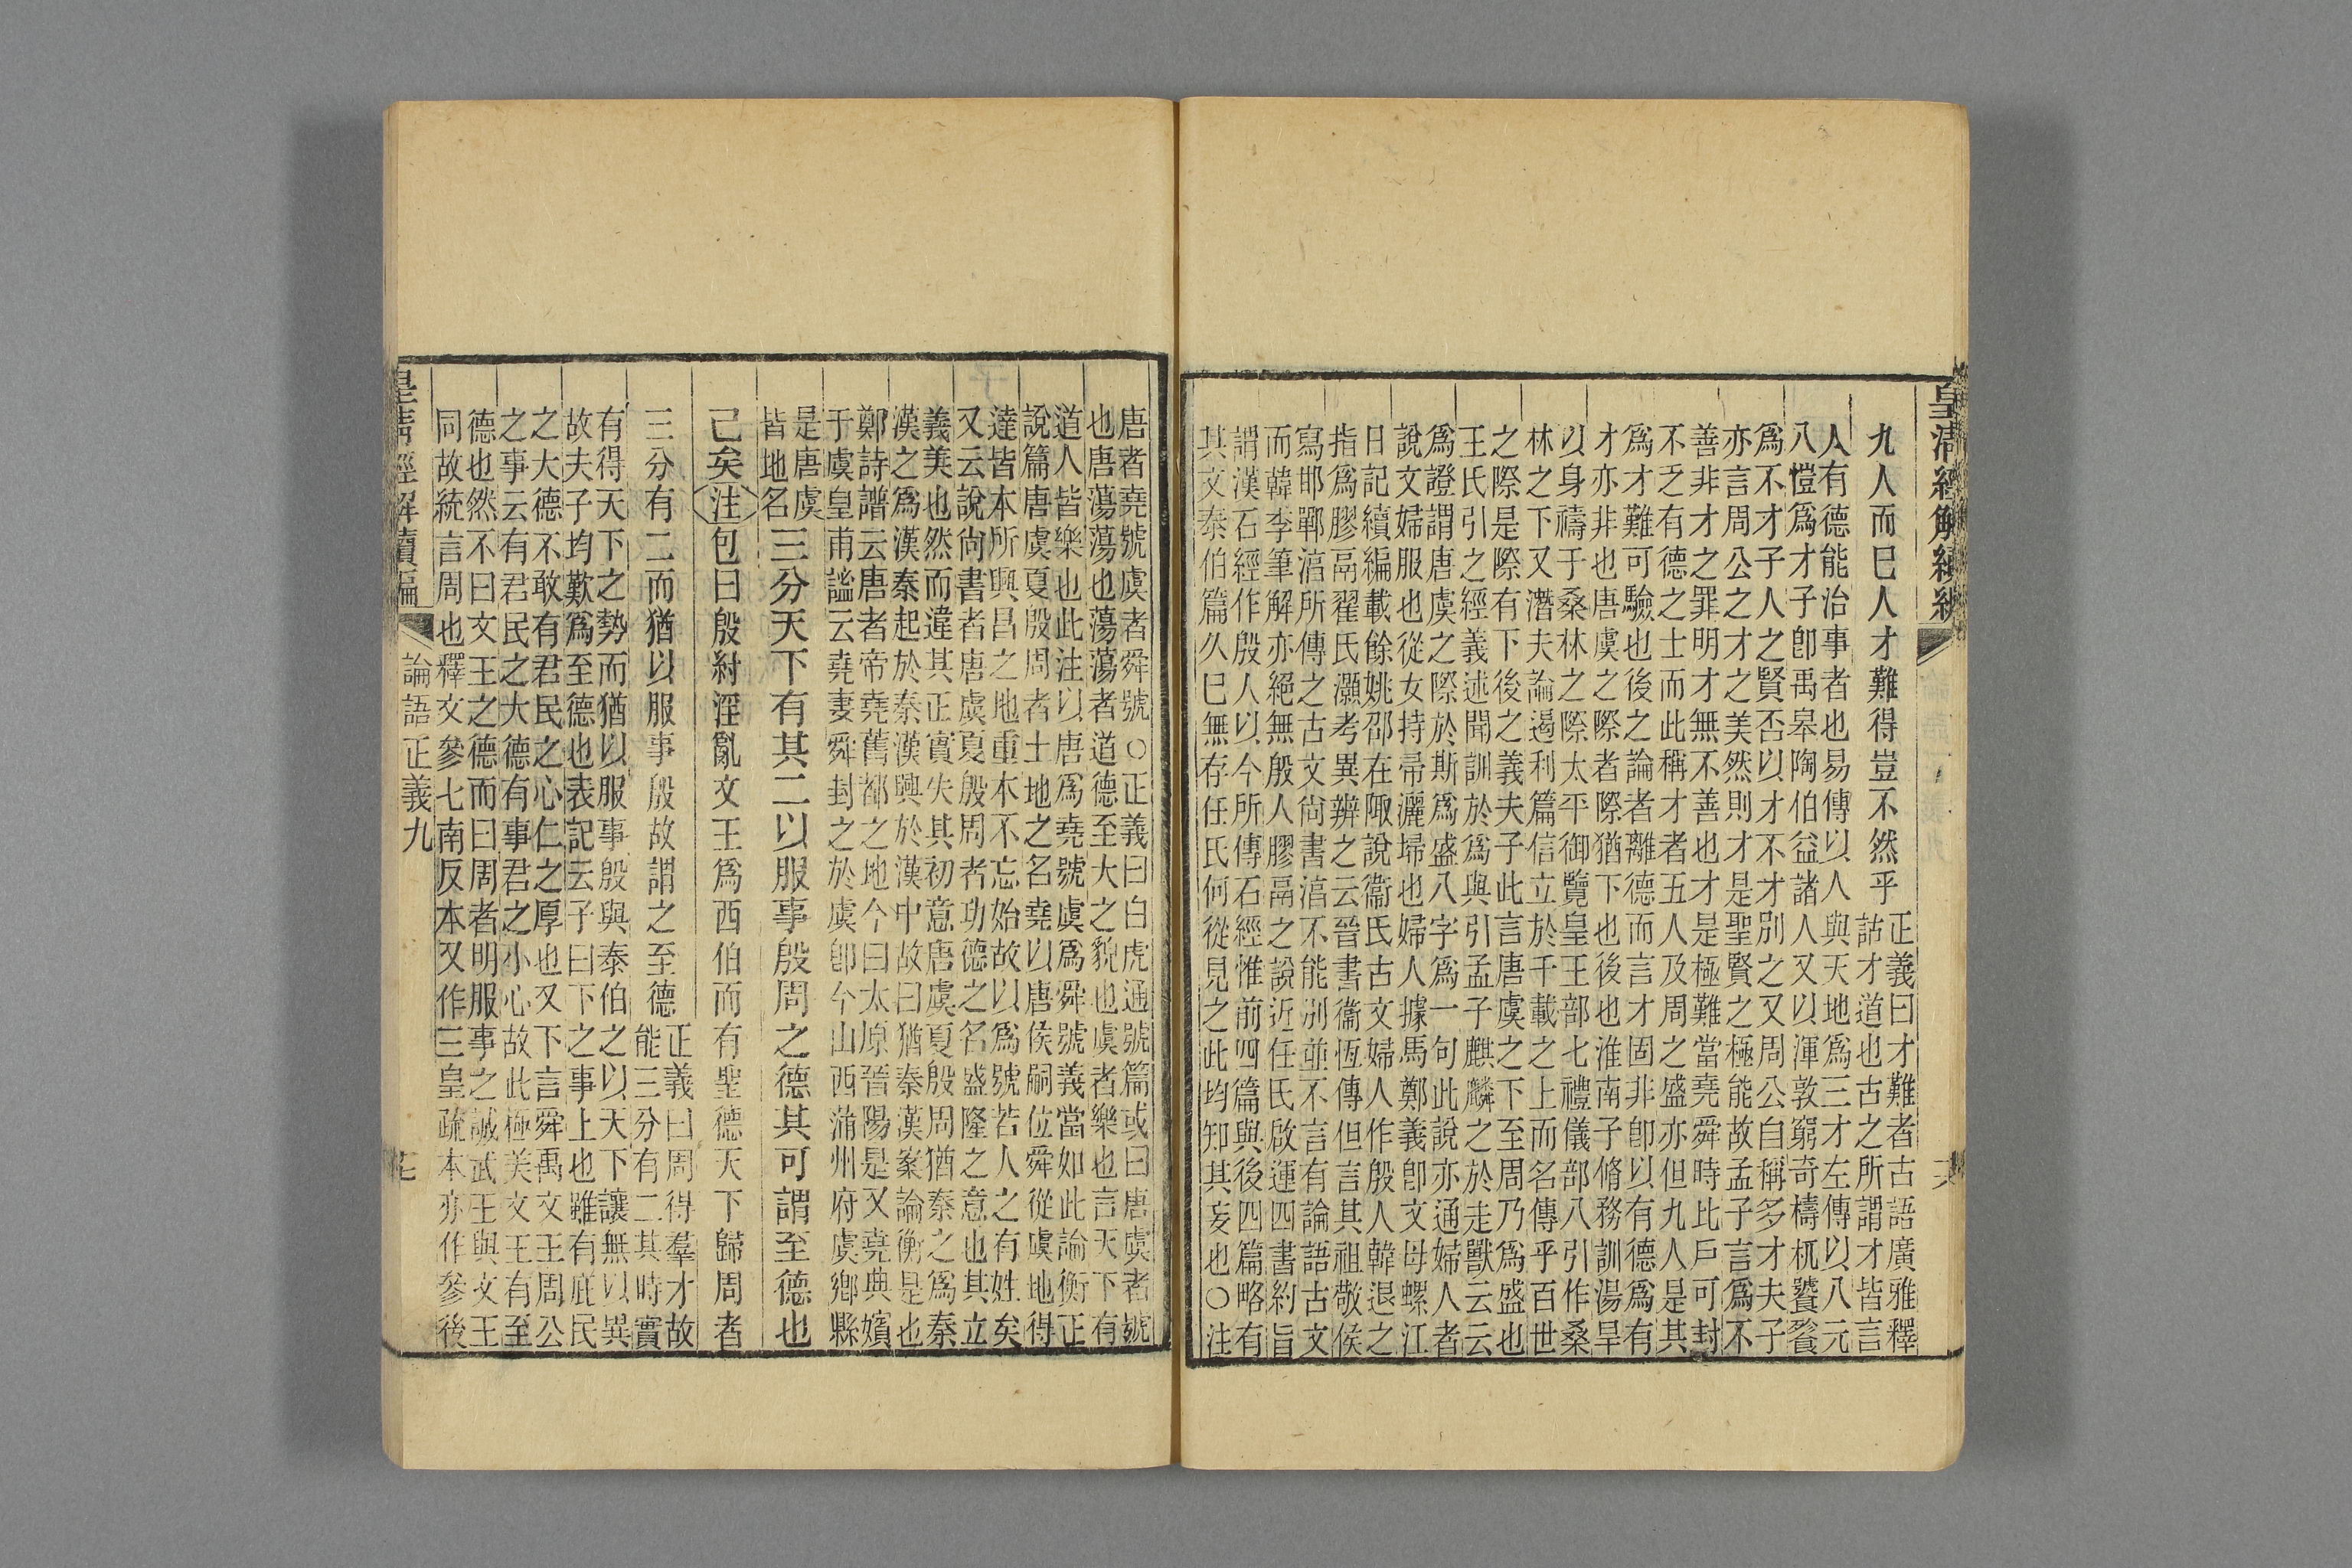 皇清經解續編
九人而已人才難得豈不然乎
正義曰才難者古語廣雅釋
詁才道也古之所謂才皆言
人有德能治事者也易傳以人與天地爲三才左傳以八元
八愷爲才子卽禹皋陶伯益諸人又以渾敦窮奇檮杌饕餮
爲不才子人之賢否以才不才別之又周公自稱多才夫子
亦言周公之才之美然則才是聖賢之極能故孟子言爲不
善非才之罪明才無不善也才是極難當堯舜時比戶可封
不乏有德之士而此稱才者五人及周之盛亦但九人是其
爲才難可驗也後之論者離德而言才固非卽以有德爲有
才亦非也唐虞之際者際猶下也後也淮南子脩務訓湯旱
以身禱于桑林之際太平御覽皇王部七禮儀部八引作桑
林之下又潛夫論遏利篇信立於千載之上而名傳乎百世
之際是際有下後之義夫子此言唐虞之下至周乃爲盛也
王氏引之經義述聞訓於爲與引孟子麒麟之於走獸云云
爲證謂唐虞之際於斯爲盛八字爲一句此說亦通婦人者
說文婦服也從女持帚灑埽也婦人據馬鄭義卽文母螺江
日記續編載餘姚邵在陬說衞氏古文婦人作殷人韓退之
指爲膠鬲翟氏灝考異辨之云晉書衞恆傳但言其祖敬侯
寫邯鄲湻所傳之古文尙書湻不能別並不言有論語古文
而韓李筆解亦絕無殷人膠鬲之說近任氏啟運四書約旨
謂漢石經作殷人以今所傳石經惟前四篇與後四篇略有
其文泰伯篇久已無存任氏何從見之此均知其妄也○注
唐者堯號虞者舜號○正義曰白虎通號篇或曰唐虞者號
也唐蕩蕩也蕩蕩者道德至大之貌也虞者樂也言天下有
道人皆樂也此注以唐爲堯號虞爲舜號義當如此論衡正
說篇唐虞夏殷周者土地之名堯以唐侯嗣位舜從虞地得
達皆本所興昌之地重本不忘始故以爲號若人之有姓矣
又云說尙書者唐虞夏殷周者功德之名盛隆之意也其立
義美也然而違其正實失其初意唐虞夏殷周猶秦之爲秦
漢之爲漢秦起於秦漢興於漢中故曰猶秦漢案論衡是也
鄭詩譜云唐者帝堯舊都之地今曰太原晉陽是又堯典嬪
于虞皇甫謐云堯妻舜封之於虞卽今山西蒲州府虞鄉縣
是唐虞
皆地名
三分天下有其二以服事殷周之德其可謂至德也
已矣注包曰殷紂淫亂文王爲西伯而有聖德天下歸周者
三分有二而猶以服事殷故謂之至德
正義曰周得羣才故
能三分有二其時實
有得天下之勢而猶以服事殷與泰伯之以天下讓無以異
故夫子均歎爲至德也表記云子曰下之事上也雖有庇民
之大德不敢有君民之心仁之厚也又下言舜禹文王周公
之事云有君民之大德有事君之小心故此極美文王有至
德也然不曰文王之德而曰周者明服事之誠武王與文王
同故統言周也釋文參七南反本又作三皇疏本亦作參後
皇清經解續編
論語正義九